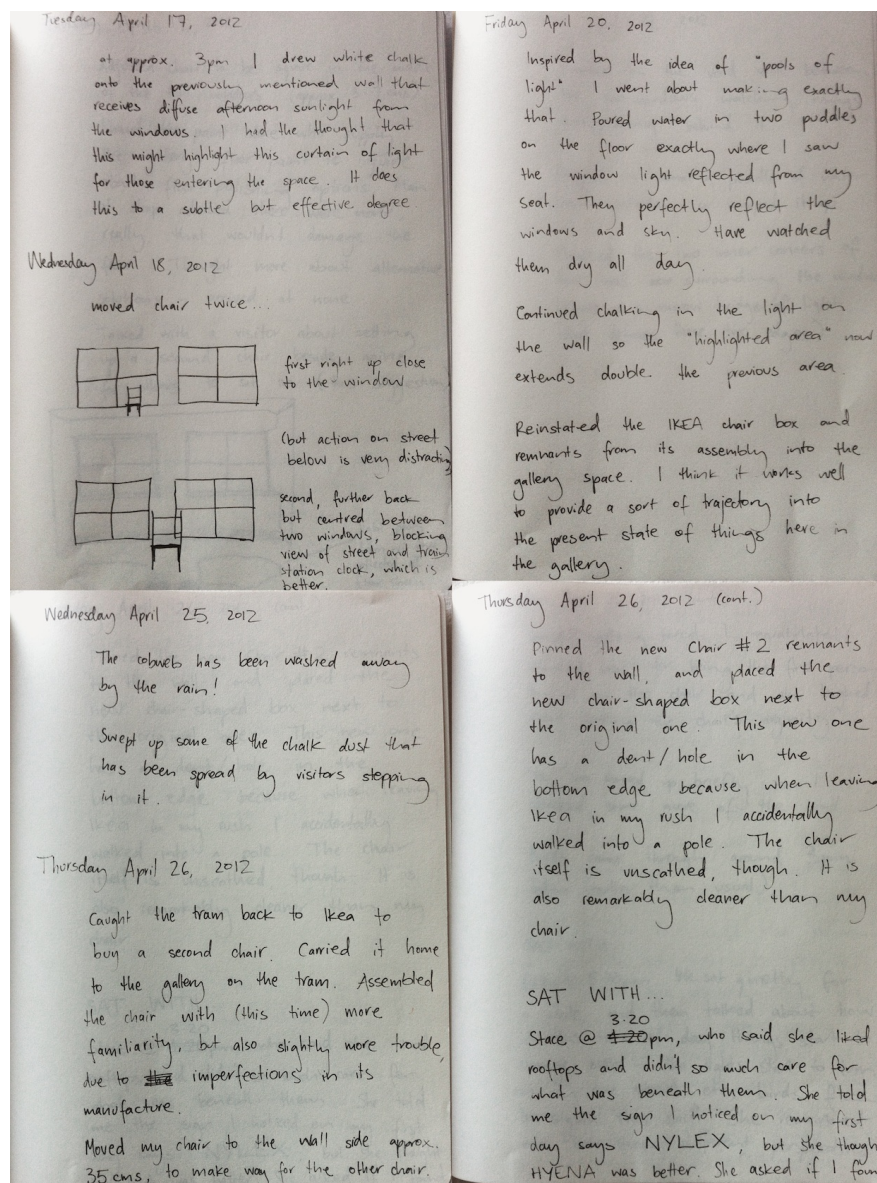 Tuesday April 17, 2012
at approx. 3pm I drew white chalk
onto the previously mentioned wall that
receives diffuse afternoon sunlight from
the windows. I had the thought that
this might highlight this curtain of light
for those entering the space. It does
this to a subtle but effective degree.
Wednesday April 18, 2012
moved chair twice...
first right up close
to the window
(but action on street
below is very distracting)
second, further back
but centred between
two windows, blocking
view of street and train
station clock, which is
better.
Friday April 20, 2012
Inspired by the idea of "pools of
light" I went about making exactly
that. Poured water in two puddles
on the floor exactly where I saw
the window light reflected from my
seat. They perfectly reflect the
windows and sky. Have watched
them dry all day.
Continued chalking in the light on
the wall so the "highlighted area" now
extends double the previous area.
Reinstated the IKEA chair box and
remnants from its assembly into the
gallery space. I think it works well
to provide a sort of trajectory into
the present state of things here in
the gallery.
Wednesday April 25, 2012
The cobweb has been washed away
by the rain!
Swept up some of the chalk dust that
has been spread by visitors stepping
in it.
Thursday April 26, 2012
Caught the tram back to Ikea to
buy a second chair. Carried it home
to the gallery on the tram. Assembled
the chair with (this time) more
familiarity, but also slightly more trouble,
due to imperfections in its
manufacture.
Moved my chair to the wall side approx.
35 cms, to make way for the other chair.
Thursday April 26, 2012 (cont.)
Pinned the new Chair #2 remnants
to the wall, and placed the
new chair-shaped box next to
the original one. This new one
has a dent/hole in the
bottom edge because when leaving
Ikea in my rush I accidentally
walked into a pole. The chair
itself is unscathed, though. It is
also remarkably cleaner than my
chair.
SAT WITH...
3.20
Stace @ 4.20pm, who said she liked
rooftops and didn't so much care for
what was beneath them. She told
me the sign I noticed on my first
day says NYLEX, but she though
HYENA was better. She asked if I foun